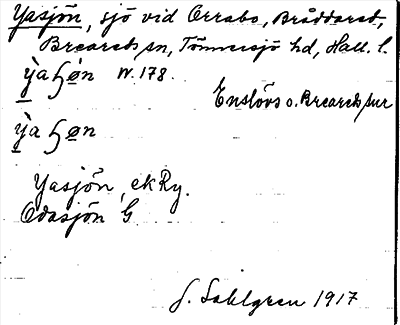 Yasjön, sjö vid Orrabo, Bråddarst,
Breareds sn, Tönnersjö hd, Hall. l.
ỳa ɧøn W. 178.
Enslövs o. Breareds snr
ỳa ɧøn
Yasjön, ekRg.
Odasjön G
J. Sahlgren 1917